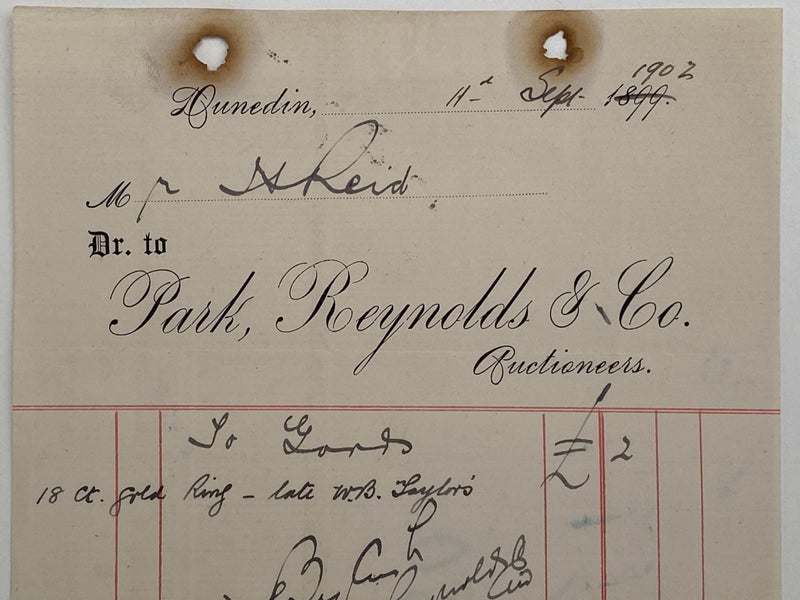 1902
Dunedin, 11th Sept 1899.
Mr H Reid
Dr. to
Park, Reynolds & Co.
Auctioneers.
To Goods £ 2
18 Ct. Gold Ring - late W.B. Taylor's
By Cash